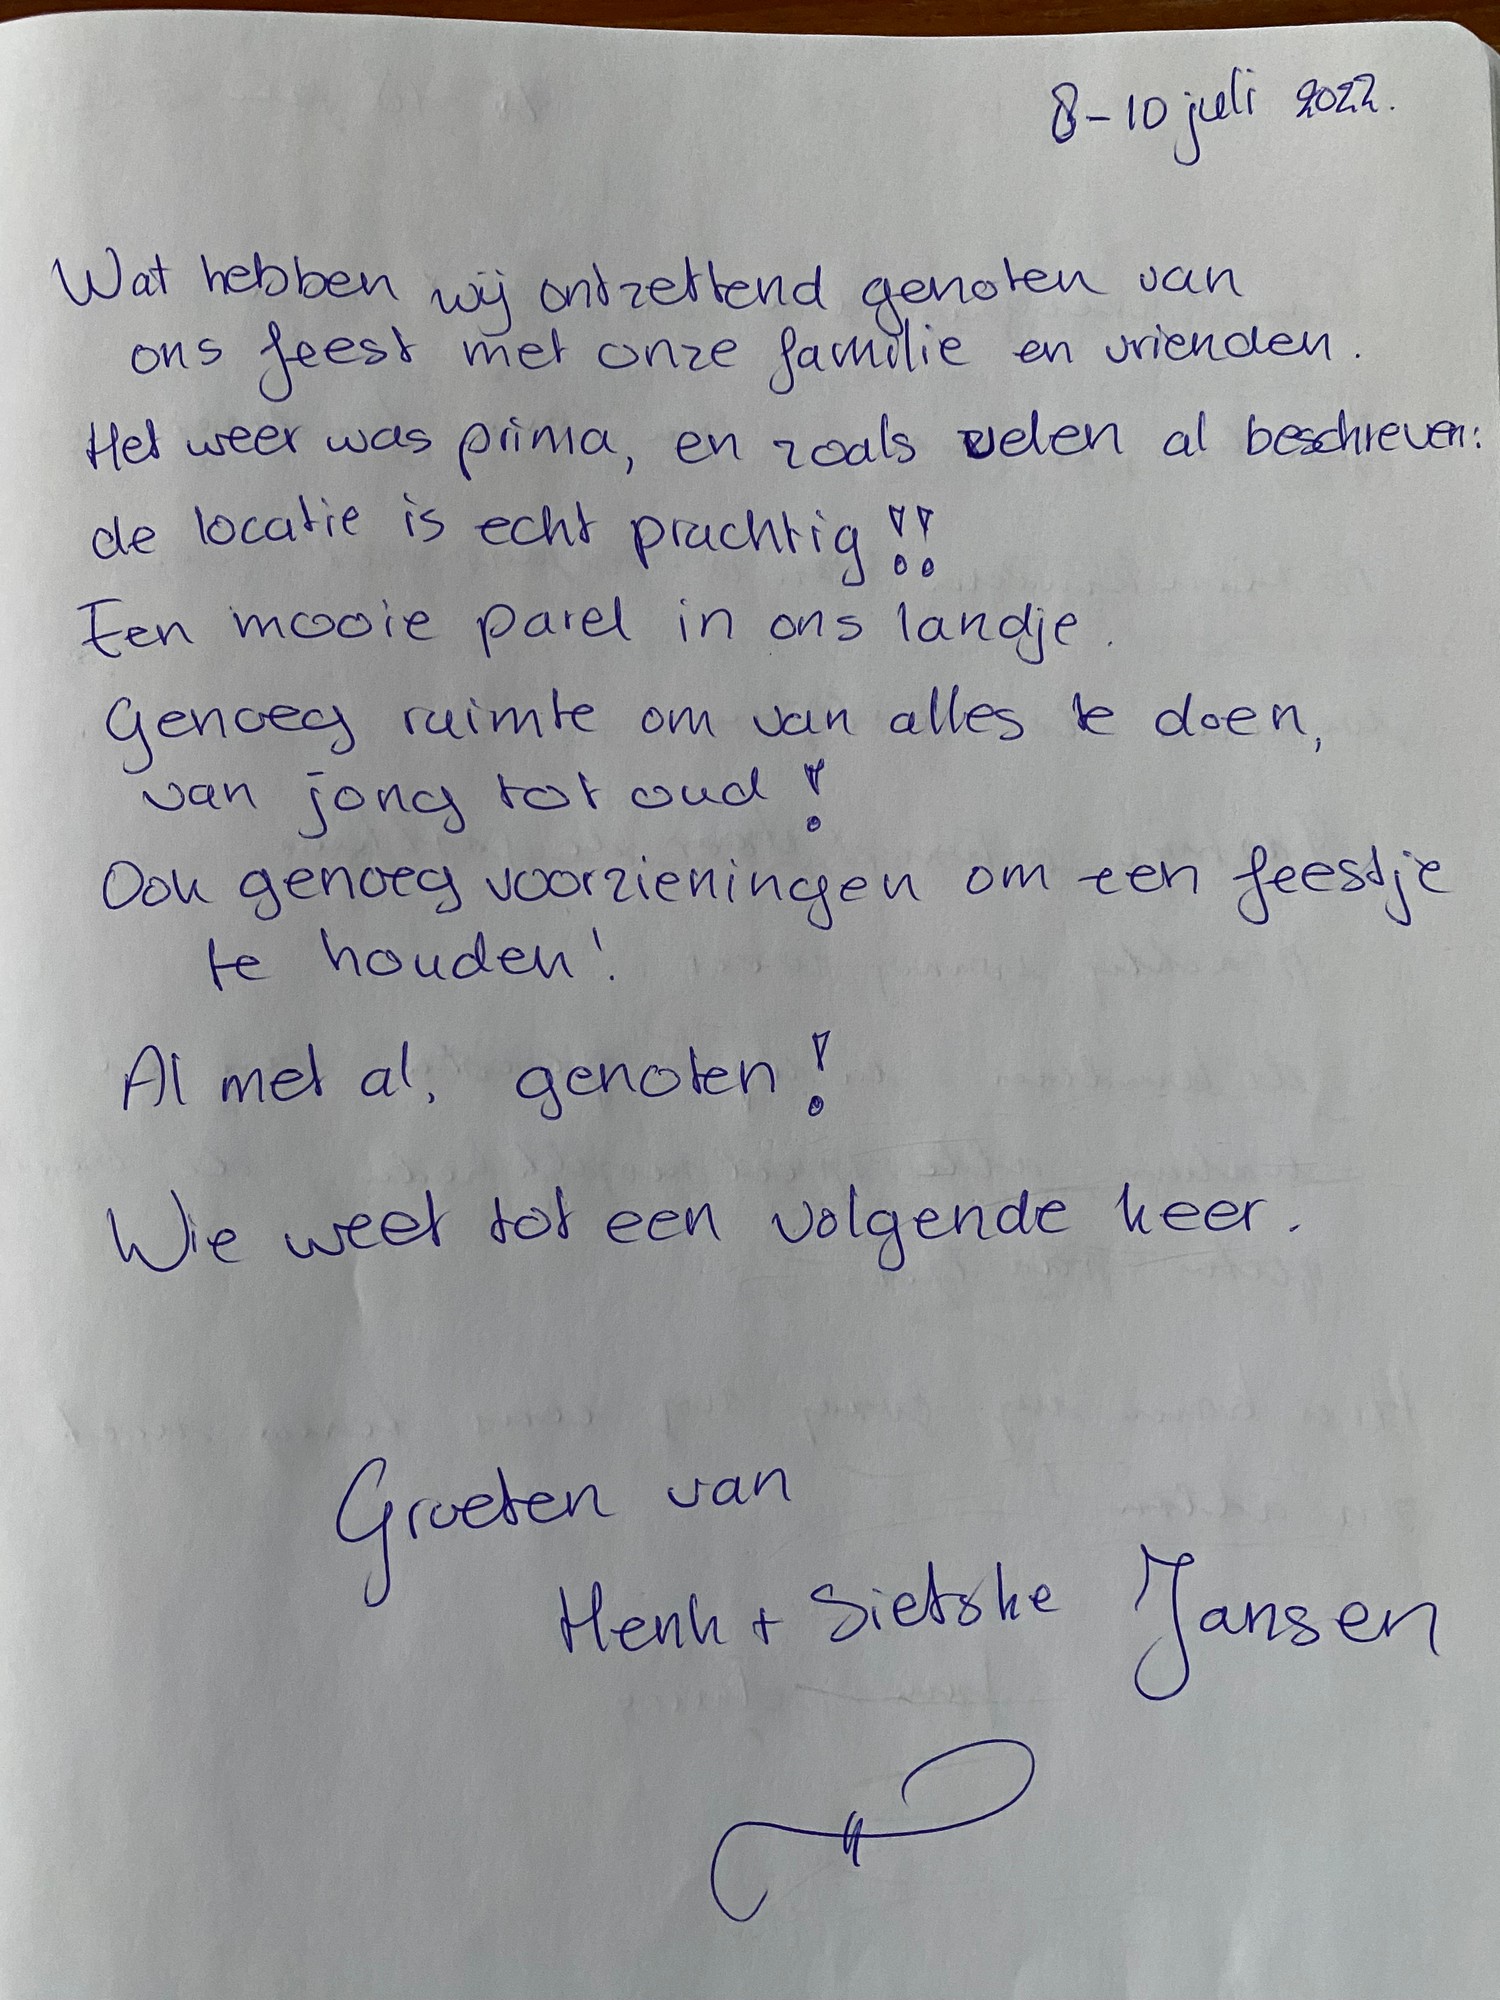 8-10 juli 2022.
Wat hebben wij ontzettend genoten van
ons feest met onze familie en vrienden.
Het weer was prima, en zoals velen al beschreven:
de locatie is echt prachtig!!
Een mooie parel in ons landje.
Genoeg ruimte om van alles te doen,
van jong tot oud!
Ook genoeg voorzieningen om een feestje
te houden!
Al met al, genoten!
Wie weet tot een volgende keer.
Groeten van
Henk + Sietske Jansen